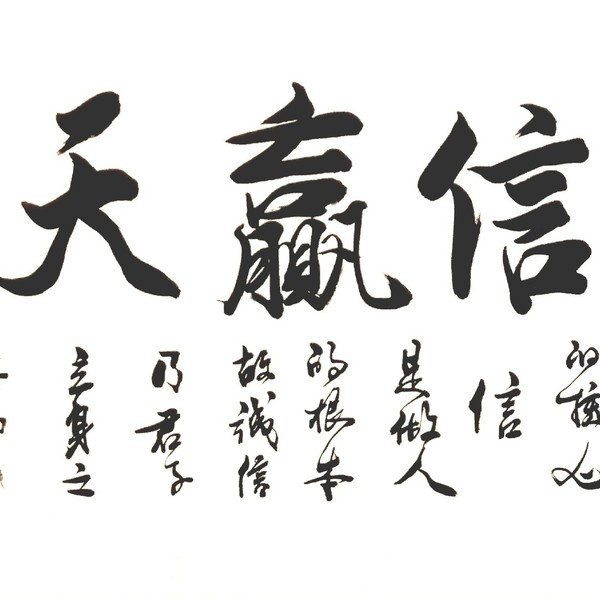 信赢天
的心
信
是做人
的根本
故诚信
乃君子
立身之